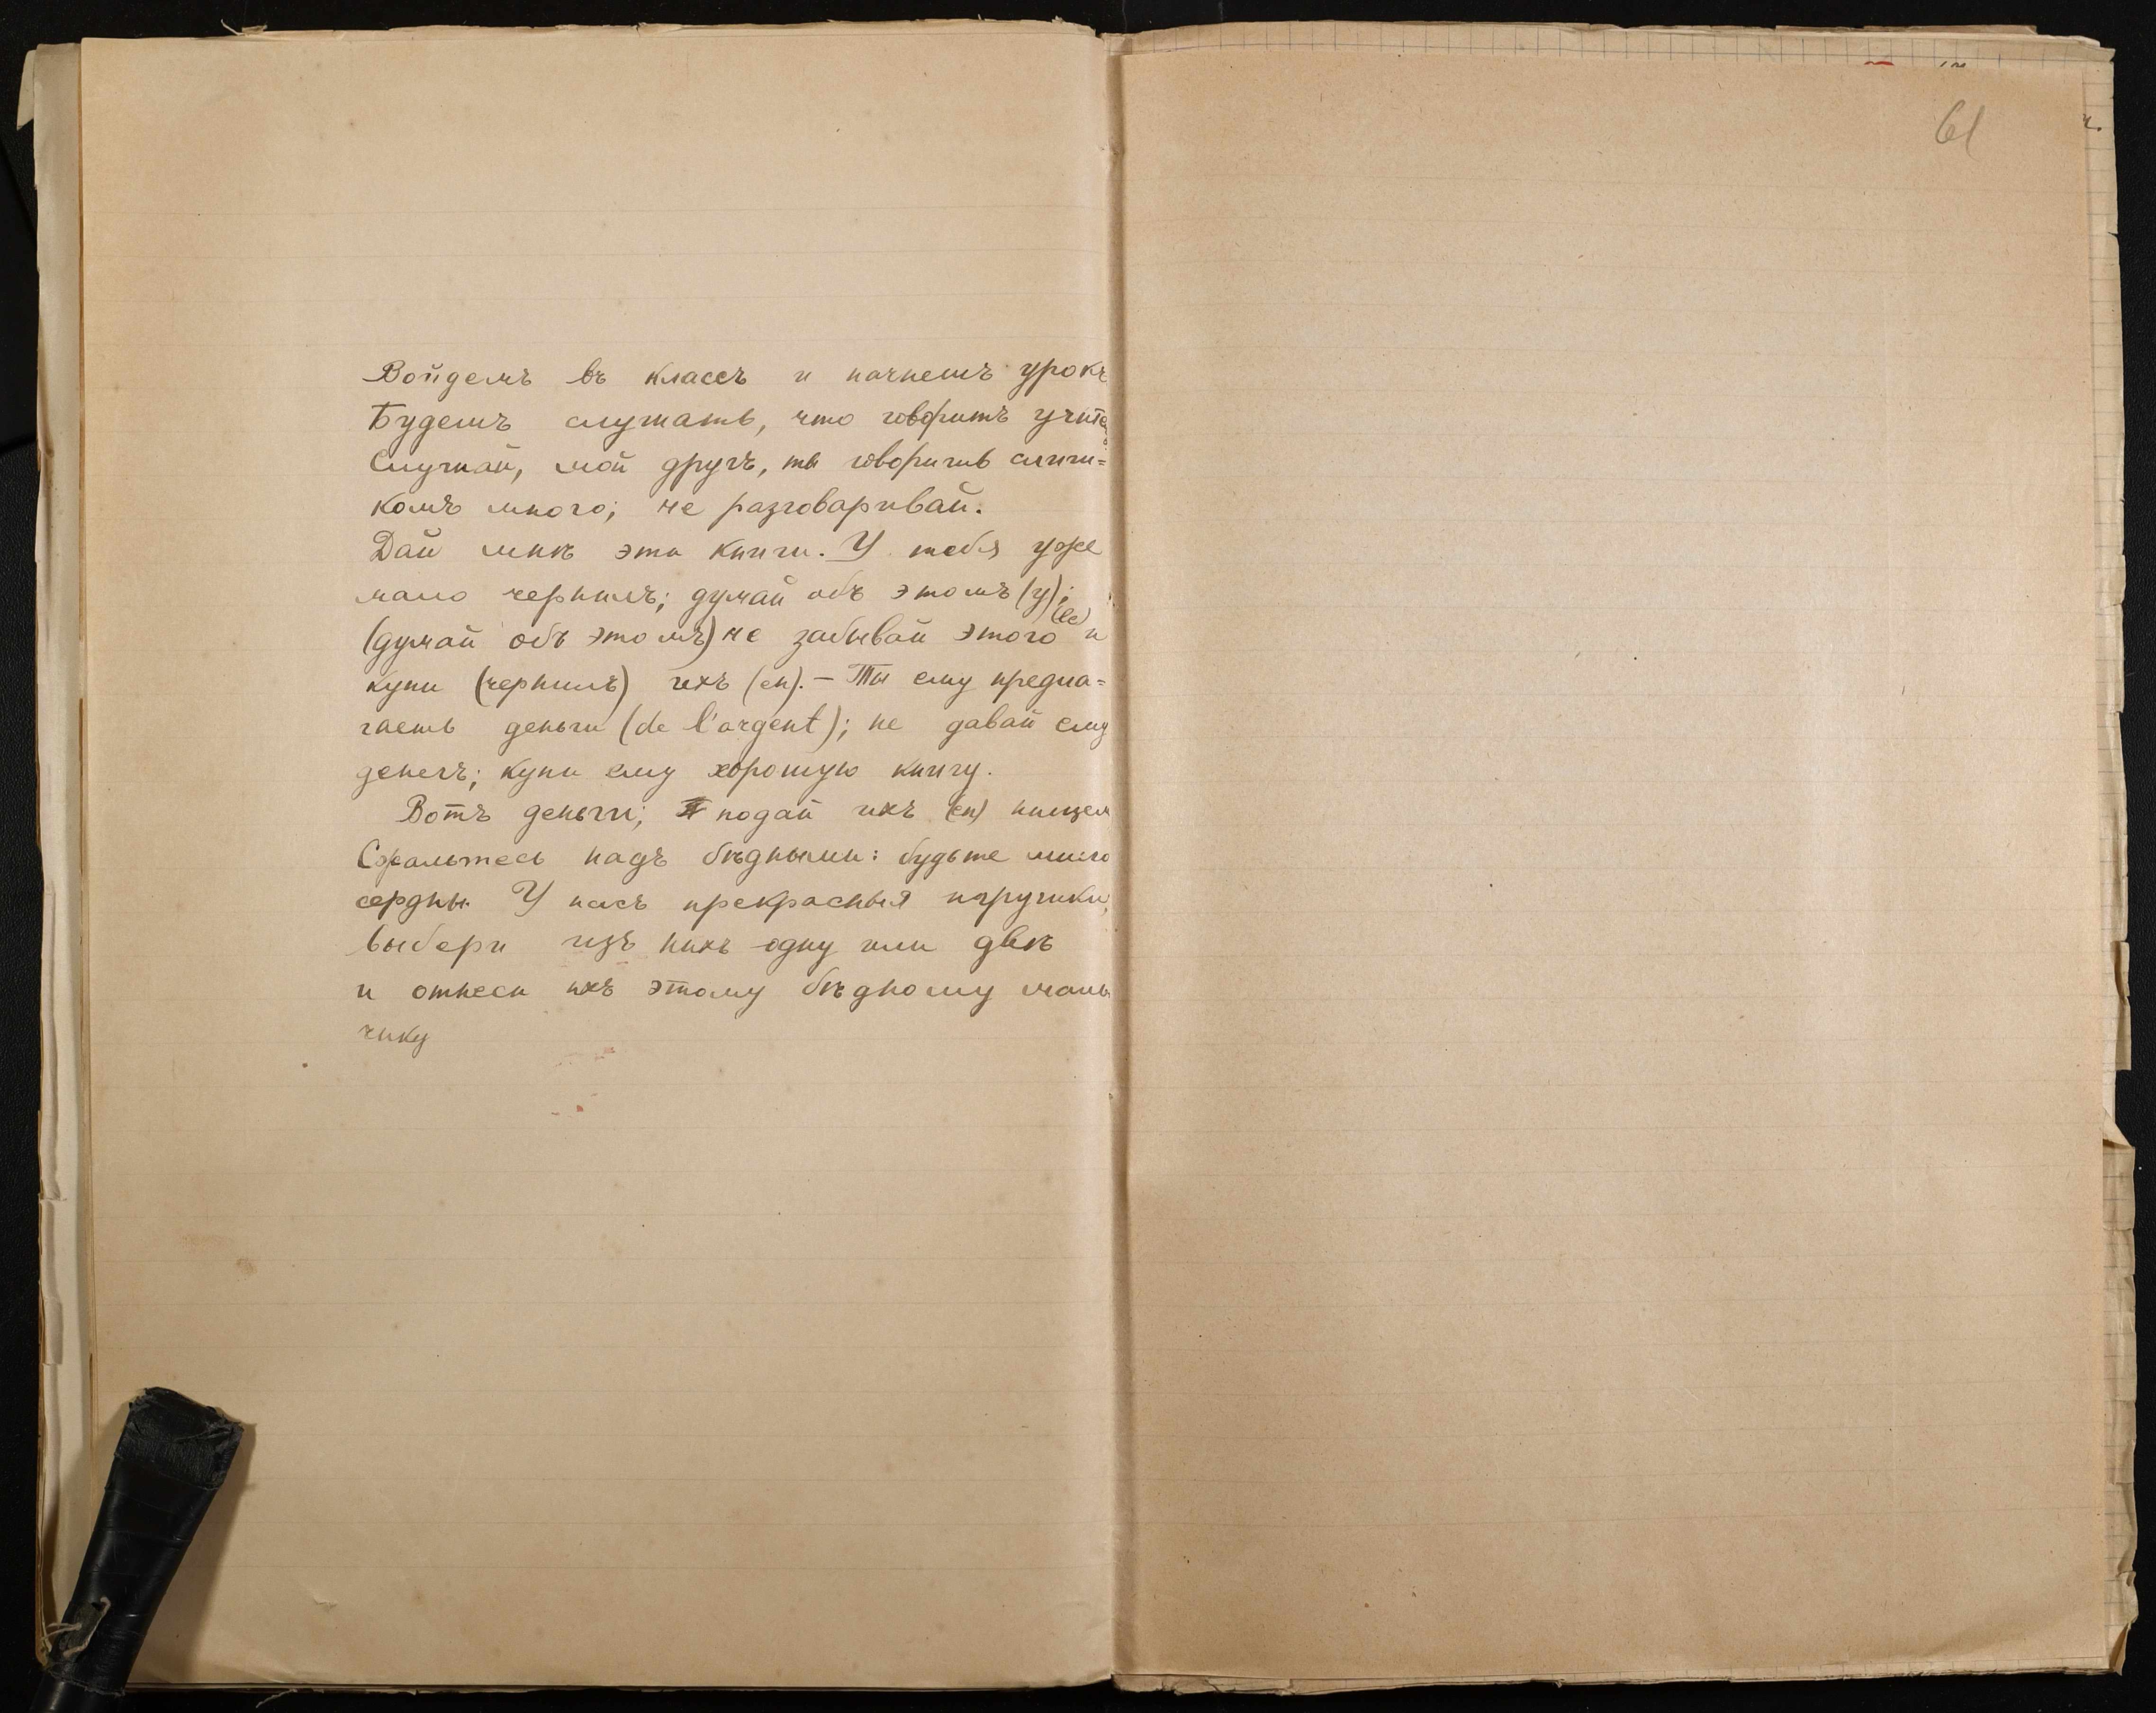 Войдемъ въ классъ и начнемъ урокъ
Будемъ слушать, что говоритъ учите
Слушай, мой другъ, ты говоришь слиш=
комъ много; не разговаривай.
Дай мнѣ эти книги. У тебя уже
мало чернилъ; думай объ этомъ (y);
(думай объ этомъ) не забывай этого (le) и
купи (чернилъ) ихъ (en). – Ты ему предла=
гаешь деньги (de l'argent); не давай ему
денегъ; купи ему хорошую книгу.
Вотъ деньги; подай ихъ (en) нищем
Сжальтесь надъ бѣдными: будьте мило
сердны. У насъ прекрасныя игрушки;
выбери изъ нихъ одну или двѣ
и отнеси ихъ этому бѣдному маль
чику
61